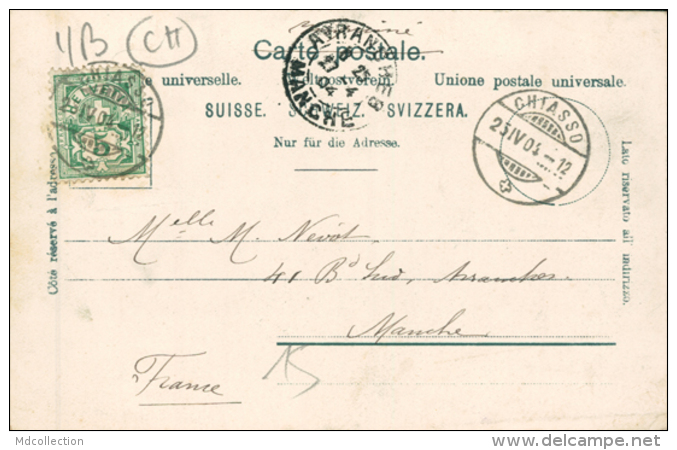 4B CH
Carte postale.
universelle. Weltpostverein. Union postale universale.
SUISSE. SCHWEIZ. SVIZZERA.
Nur für die Adresse.
Côté réservé à l'adresse.
Lato riservato all' indirizzo.
CHIASSO
25 IV 04 - 12
HELVETIA
5
CHIASSO
25 IV 04 - 12
AVRANCHES
MANCHE
27 4 04
Melle M. Nevôt
41 Bd Sud, Avranches.
Manche
France
Mdcollection
www.delcampe.net